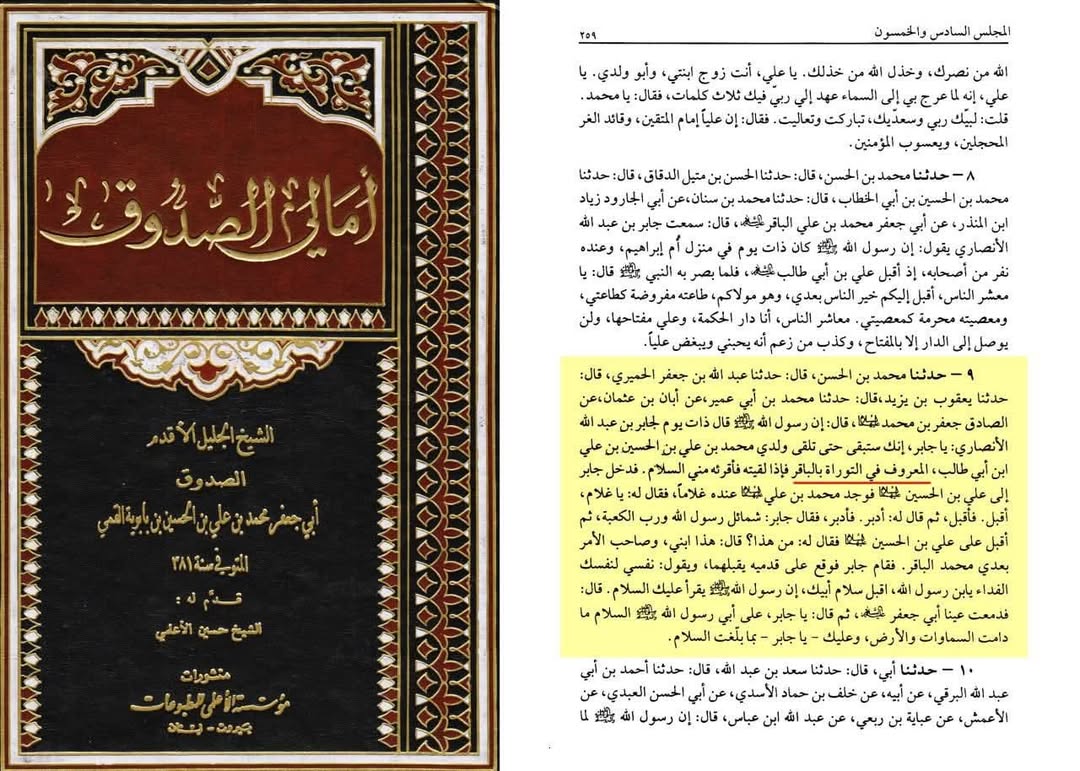 أمالي الصدوق
الشيخ الجليل الأقدم
الصدوق
أبي جعفر محمد بن علي بن الحسين بن بابويه القمي
المتوفى سنة ٣٨١
قدّم له :
الشيخ حسين الأعلمي
منشورات
مؤسسة الأعلمي للمطبوعات
بيروت - لبنان
المجلس السادس والخمسون
٢٥٩
الله من نصرك، وخذل الله من خذلك. يا علي، أنت زوج ابنتي، وأبو ولدي. يا
علي، إنه لما عرج بي إلى السماء عهد إلي ربيّ فيك ثلاث كلمات، فقال: يا محمد.
قلت: لبيّك ربي وسعديّك، تباركت وتعاليت. فقال: إن علياً إمام المتقين، وقائد الغر
المحجلين، ويعسوب المؤمنين.
٨ – حدثنا محمد بن الحسن، قال: حدثنا الحسن بن متيل الدقاق، قال: حدثنا
محمد بن الحسين بن أبي الخطاب، قال: حدثنا محمد بن سنان، عن أبي الجارود زياد
ابن المنذر، عن أبي جعفر محمد بن علي الباقر، قال: سمعت جابر بن عبد الله
الأنصاري يقول: إن رسول الله ﷺ كان ذات يوم في منزل أُم إبراهيم، وعنده
نفر من أصحابه، إذ أقبل علي بن أبي طالب، فلما بصر به النبي ﷺ قال: يا
معشر الناس، أقبل إليكم خير الناس بعدي، وهو مولاكم، طاعته مفروضة كطاعتي،
ومعصيته محرمة كمعصيتي. معاشر الناس، أنا دار الحكمة، وعلي مفتاحها، ولن
يوصل إلى الدار إلا بالمفتاح، وكذب من زعم أنه يحبني ويبغض علياً.
٩ – حدثنا محمد بن الحسن، قال: حدثنا عبد الله بن جعفر الحميري، قال:
حدثنا يعقوب بن يزيد،قال: حدثنا محمد بن أبي عمير،عن أبان بن عثمان،عن
الصادق جعفر بن محمد، قال: إن رسول الله ﷺ قال ذات يوم لجابر بن عبد الله
الأنصاري: يا جابر، إنك ستبقى حتى تلقى ولدي محمد بن علي بن الحسين بن علي
ابن أبي طالب، المعروف في التوراة بالباقر فإذا لقيته فأقرئه مني السلام. فدخل جابر
إلى علي بن الحسين فوجد محمد بن علي عنده غلاماً، فقال له: يا غلام،
أقبل. فأقبل، ثم قال له: أدبر. فأدبر، فقال جابر: شمائل رسول الله ورب الكعبة، ثم
أقبل على علي بن الحسين فقال له: من هذا؟ قال: هذا ابني، وصاحب الأمر
بعدي محمد الباقر. فقام جابر فوقع على قدميه يقبلهما، ويقول: نفسي لنفسك
الفداء يابن رسول الله، اقبل سلام أبيك، إن رسول الله ﷺ يقرأ عليك السلام. قال:
فدمعت عينا أبي جعفر، ثم قال: يا جابر، على أبي رسول الله ﷺ السلام ما
دامت السماوات والأرض، وعليك – يا جابر – بما بلّغت السلام.
١٠ – حدثنا أبي، قال: حدثنا سعد بن عبد الله، قال: حدثنا أحمد بن أبي
عبد الله البرقي، عن أبيه، عن خلف بن حماد الأسدي، عن أبي الحسن العبدي، عن
الأعمش، عن عباية بن ربعي، عن عبد الله ابن عباس، قال: إن رسول الله ﷺ لما